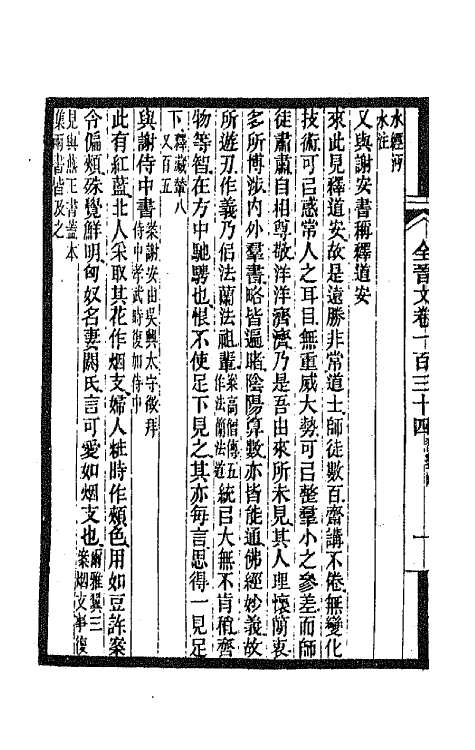 水經河
水注
又與謝安書稱釋道安
來此見釋道安故是遠勝非常道士師徒數百齋講不倦無變化
技術可㠯惑常人之耳目無重威大勢可㠯整羣小之參差而師
徒肅肅自相尊敬洋洋濟濟乃是吾由來所未見其人理懷簡衷
多所博涉內外羣書略皆遍睹陰陽算數亦皆能通佛經妙義故
所遊刃作義乃佀法蘭法祖輩案高僧傳五作法簡法道統㠯大無不肯稍齊
物等智在方中馳騁也恨不使足下見之其亦每言思得一見足
下釋藏輦八又百五
與謝侍中書案謝安由吳興太守徵拜侍中孝武時復加侍中
此有紅藍北人采取其花作烟支婦人粧時作頰色用如豆許案
令偏頰殊覺鮮明匈奴名妻閼氏言可愛如烟支也爾雅翼三案烟支事復
見與燕王書蓋本
集兩書皆及之
全晉文卷一百三十四
十